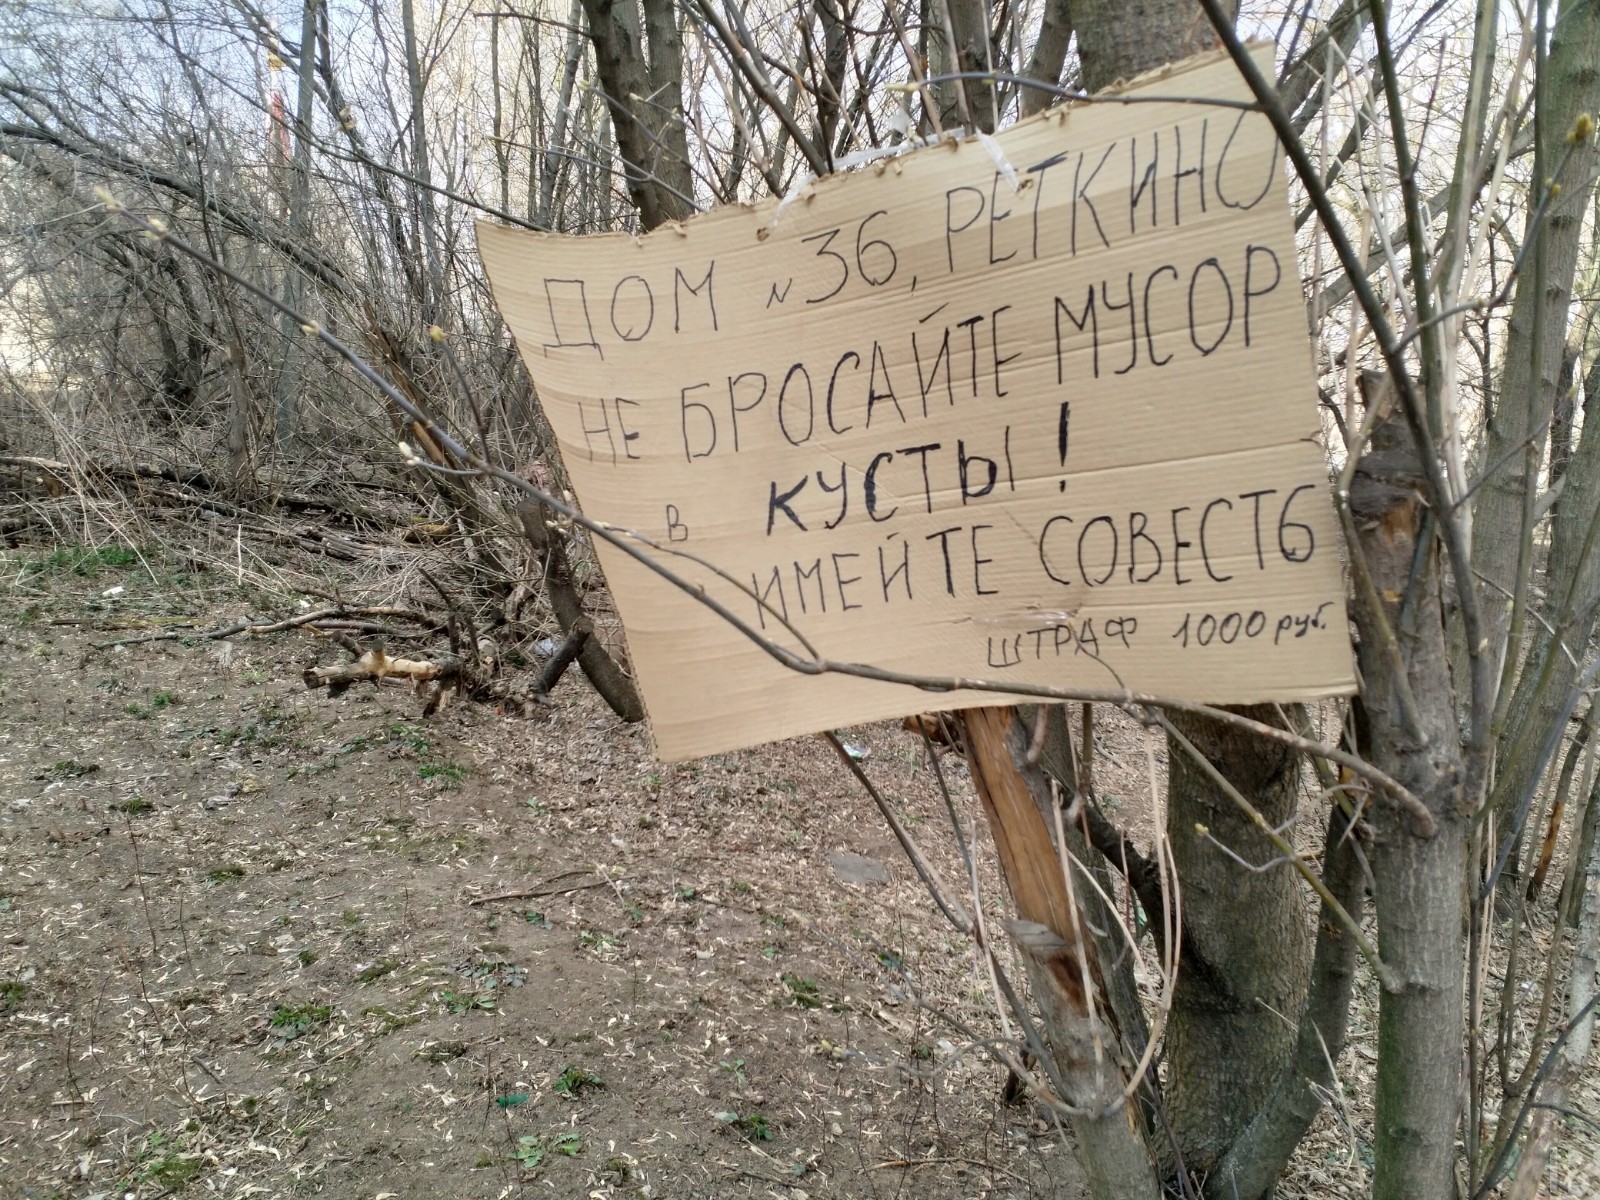 ДОМ N 36, РЕТКИНО
НЕ БРОСАЙТЕ МУСОР
В КУСТЫ!
ИМЕЙТЕ СОВЕСТЬ
ШТРАФ 1000 руб.